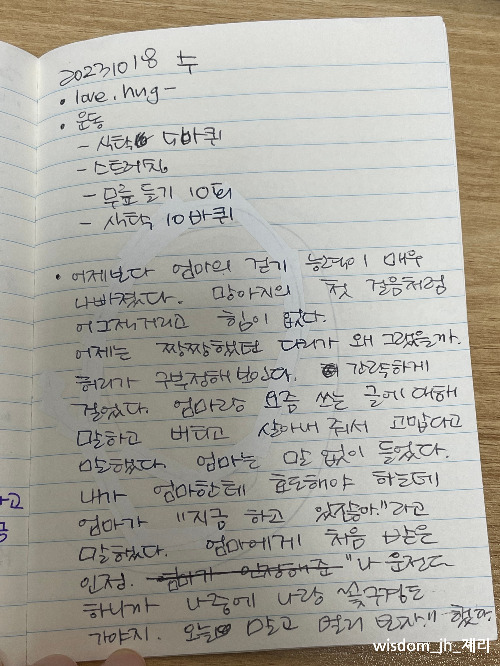 20231018 수
• love. hug -
• 운동
- 식탁 5바퀴
- 스트레칭
- 무릎 들기 10회
- 식탁 10바퀴
• 어제보다 엄마의 걷기 능력이 매우
나빠졌다. 망아지의 첫 걸음처럼
어그적거리고 힘이 없다.
어제는 짱짱했던 다리가 왜 그랬을까.
허리가 구부정해보인다. 갸우뚱하게
걸었다. 엄마랑 요즘 쓰는 글에 대해
말하고 버티고 살아내 줘서 고맙다고
말했다. 엄마는 말 없이 들었다.
내가 엄마한테 효도해야 하는데
엄마가 "지금 하고 있잖아."라고
말했다. 엄마에게 처음 받은
인정. 엄마가 인정해준 "나 운전도
하니까 나중에 나랑 꽃구경도
가야지. 오늘 말고 멀리 보자." 했다.
하고
공
wisdom_jh_제리